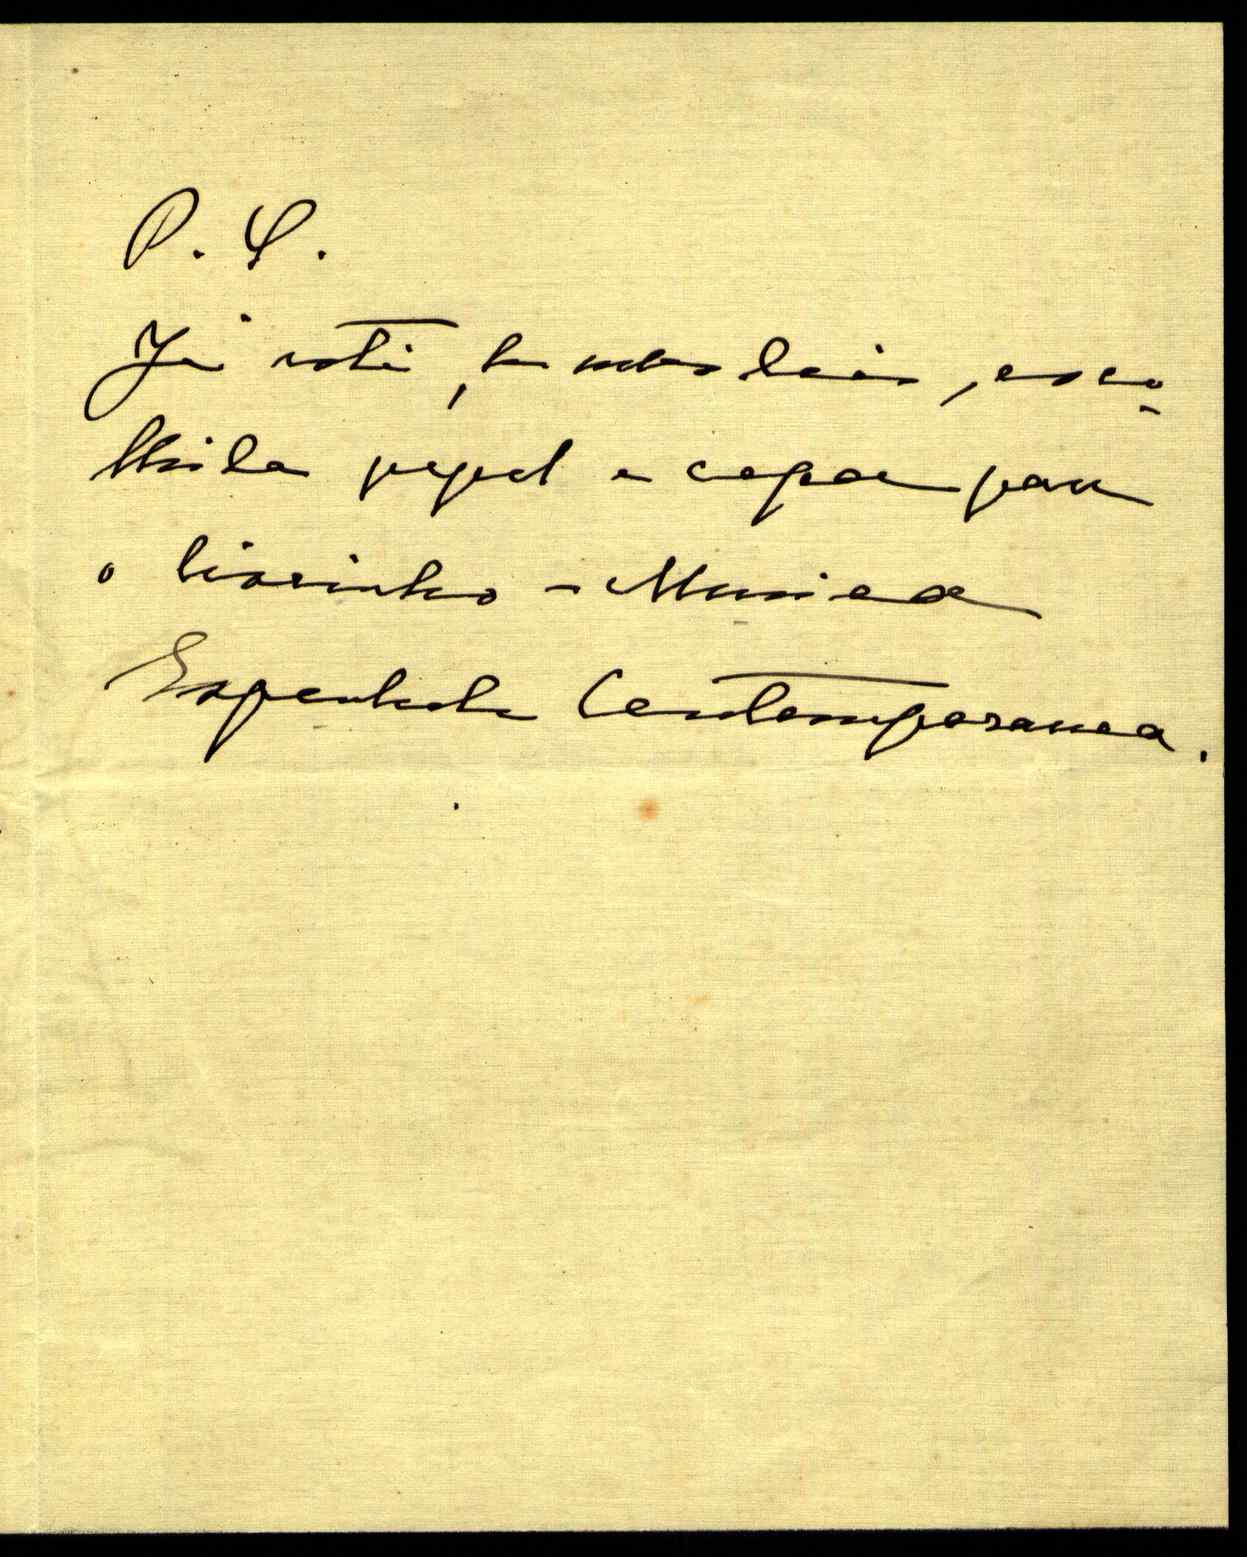 P. S.
Já está, ha muitos dias, esco-
lhida papel e capa para
o livrinho - Musica
Espanhola Contemporanea.